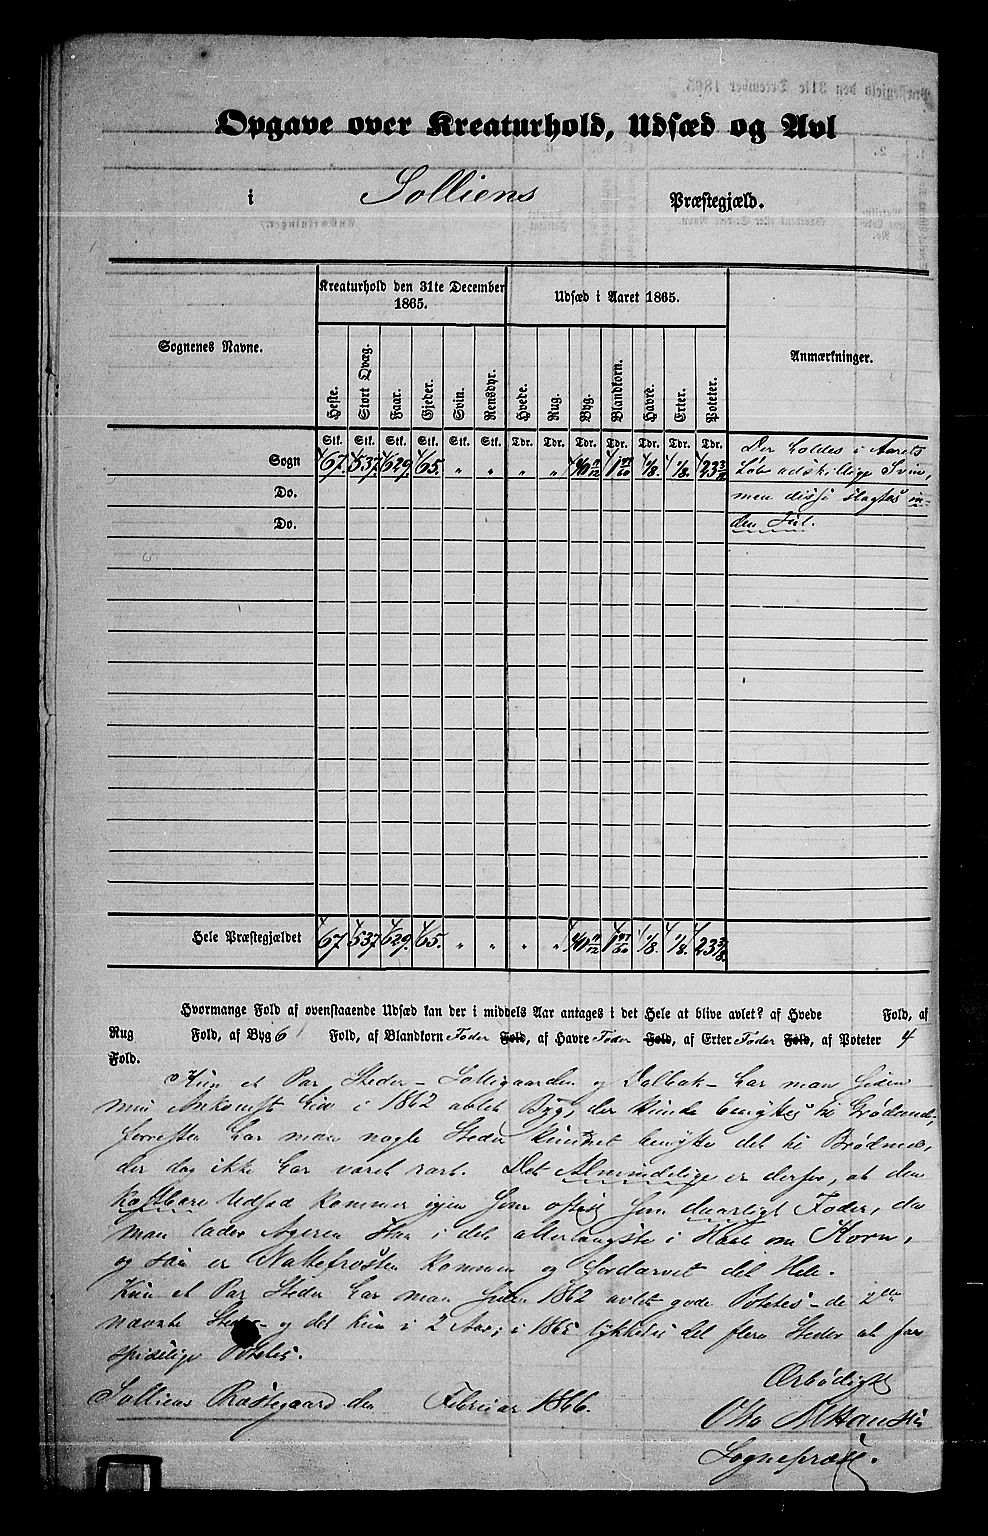 Opgave over Kreaturhold, Udsæd og Avl
i Solliens Præstegjæld.
Sognenes Navne.
Kreaturhold den 31te December 1865.
Udsæd i Aaret 1865.
Anmærkninger.
Heste. Stort Qvæg. Faar. Gjeder. Svin. Rensdyr. Hvede. Rug. Byg. Blandkorn. Havre. Erter. Poteter.
Stk. Stk. Stk. Stk. Stk. Stk. Tdr. Tdr. Tdr. Tdr. Tdr. Tdr. Tdr.
Sogn 67. 537. 629. 65. " " " " 40 11/12 1/8. 1/8. 23
Do.
Do.
Der holdes i Aarets
Løb adskillige Sviin,
men disse slagtes in-
den Jul.
Hele Præstegjældet 67. 537. 629. 65. " " " " 40 11/12 1/8. 1/8. 23 3/8.
Hvormange Fold af ovenstaaende Udsæd kan der i middels Aar antages i det Hele at blive avlet? af Hvede Fold, af
Rug Fold, af Byg 6 Fold, af Blandkorn Foder Fold, af Havre Foder Fold, af Erter Foder Fold, af Poteter 4
Fold.
Kun et Par Steder – Solligaarden og Dalbak – har man siden
min Ankomst her i 1862 avlet Byg, der kunde benyttes til
forresten har man nogle Steder kunnet benytte det til
der dog ikke har været rart. Det Almindelige er derfor, at den
kostbare Udsæd kommer igjen som oftest som daarligt Foder, da
man lader Ageren staa i det allerlængste i Haab om Korn,
og saa er Nattefrosten kommen og fordærvet det Hele.
Kun et Par Steder har man siden 1862 avlet gode Potetes – de 2de
nævnte Steder – og det kun i 2 Aar; i 1865 lykkedes det flere Steder at faa
spiselige Potetes.
Ærbødigst
Solliens Præstegaard den Februar 1866.
Otto
Sognepræst.